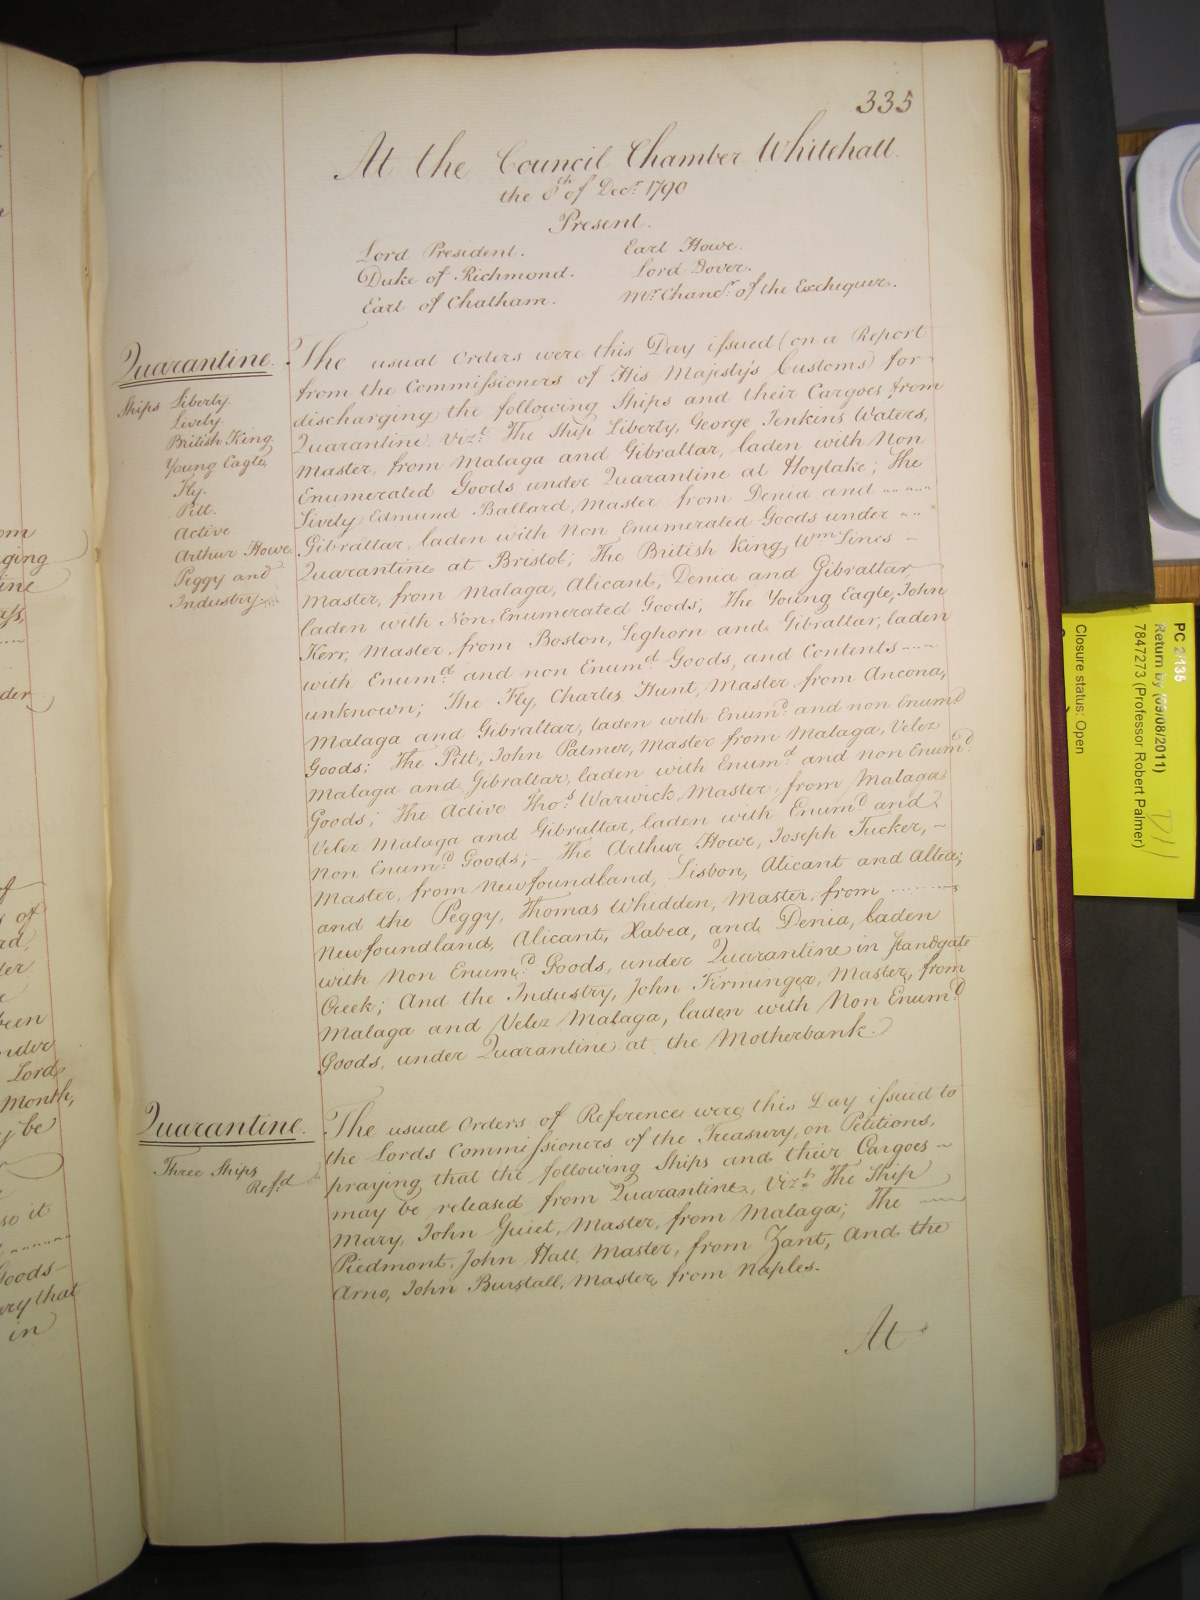 335
At the Council Chamber Whitehall.
the 8th of Decr. 1790
Present.
Lord President. Earl Howe.
Duke of Richmond. Lord Dover.
Earl of Chatham. Mr. Chancr. of the Exchequer.
Quarantine.
Ships Liberty.
Lively.
British King
Young Eagle,
Fly.
Pitt.
Active
Arthur Howe.
Peggy and
Industry
The usual Orders were this Day issued (on a Report
from the Commissioners of His Majesty's Customs) for
discharging the following Ships and their Cargoes from
Quarantine Vizt. The Ship Liberty, George Jenkins Waters,
Master, from Malaga and Gibraltar, laden with Non
Enumerated Goods under Quarantine at Hoylake; The
Lively Edmund Ballard, Master from Denia and
Gibraltar, laden with Non Enumerated Goods under
Quarantine at Bristol; The British King, Wm Lines –
Master, from Malaga, Alicant, Denia and Gibraltar
laden with Non Enumerated Goods; The Young Eagle, John
Kerr, Master from Boston, Leghorn and Gibraltar, laden
with Enumd. and non Enumd. Goods, and Contents
unknown; The Fly, Charles Hunt, Master from Ancona,
Malaga and Gibraltar, laden with Enumd. and non Enumd
Goods; The Pitt, John Palmer, Master from Malaga, Velez
Malaga and Gibraltar, laden with Enumd. and non Enumd.
Goods; The Active Thos. Warwick, Master, from Malaga
Velez Malaga and Gibraltar, laden with Enumd. and
non Enumd. Goods;– The Arthur Howe, Joseph Tucker, –
Master, from Newfoundland, Lisbon, Alicant and Altea;
and the Peggy, Thomas Whidden, Master, from
Newfoundland, Alicant, Xabea, and Denia, laden
with Non Enumd. Goods, under Quarantine in Standgate
Creek; And the Industry, John Firminger, Master, from
Malaga and Velez Malaga, laden with Non Enumd
Goods, under Quarantine at the Motherbank.
Quarantine.
Three Ships
Refd.
The usual Orders of Reference were this Day issued to
the Lords Commissioners of the Treasury, on Petitions,
praying that the following Ships and their Cargoes –
may be released from Quarantine, Vizt. The Ship
Mary, John Guiet, Master, from Malaga; The
Piedmont, John Hall, Master, from Zant, And the
Arno, John Burstall, Master, from Naples.
At
om
ging
ine
ass,
der
of
s of
rd,
der
been
nder
Lord
Month,
y be
so it
Goods
ury that
in
PC 2/135
Return by (09/08/2011)
7847273 (Professor Robert Palmer)
Closure status: Open